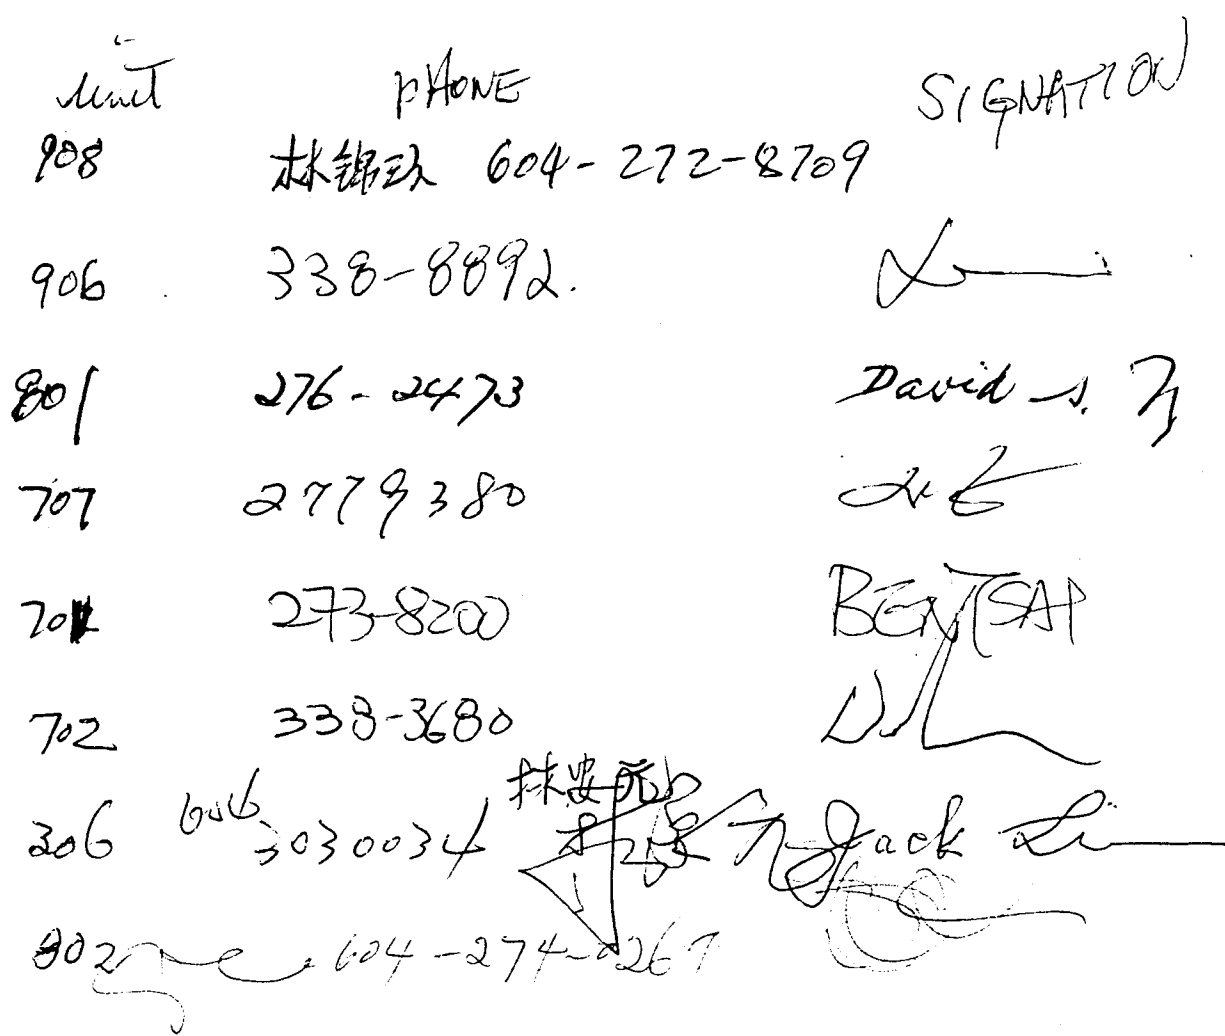 Unit PHONE SIGNATION
908 林錦玖 604-272-8709
906 338-8892.
801 276-2473 David S.
707 2779380
701 273-8200 BEN TSAI
702 338-3680
林安元
306 604 3030034 Jack Li
802 604-274-0267